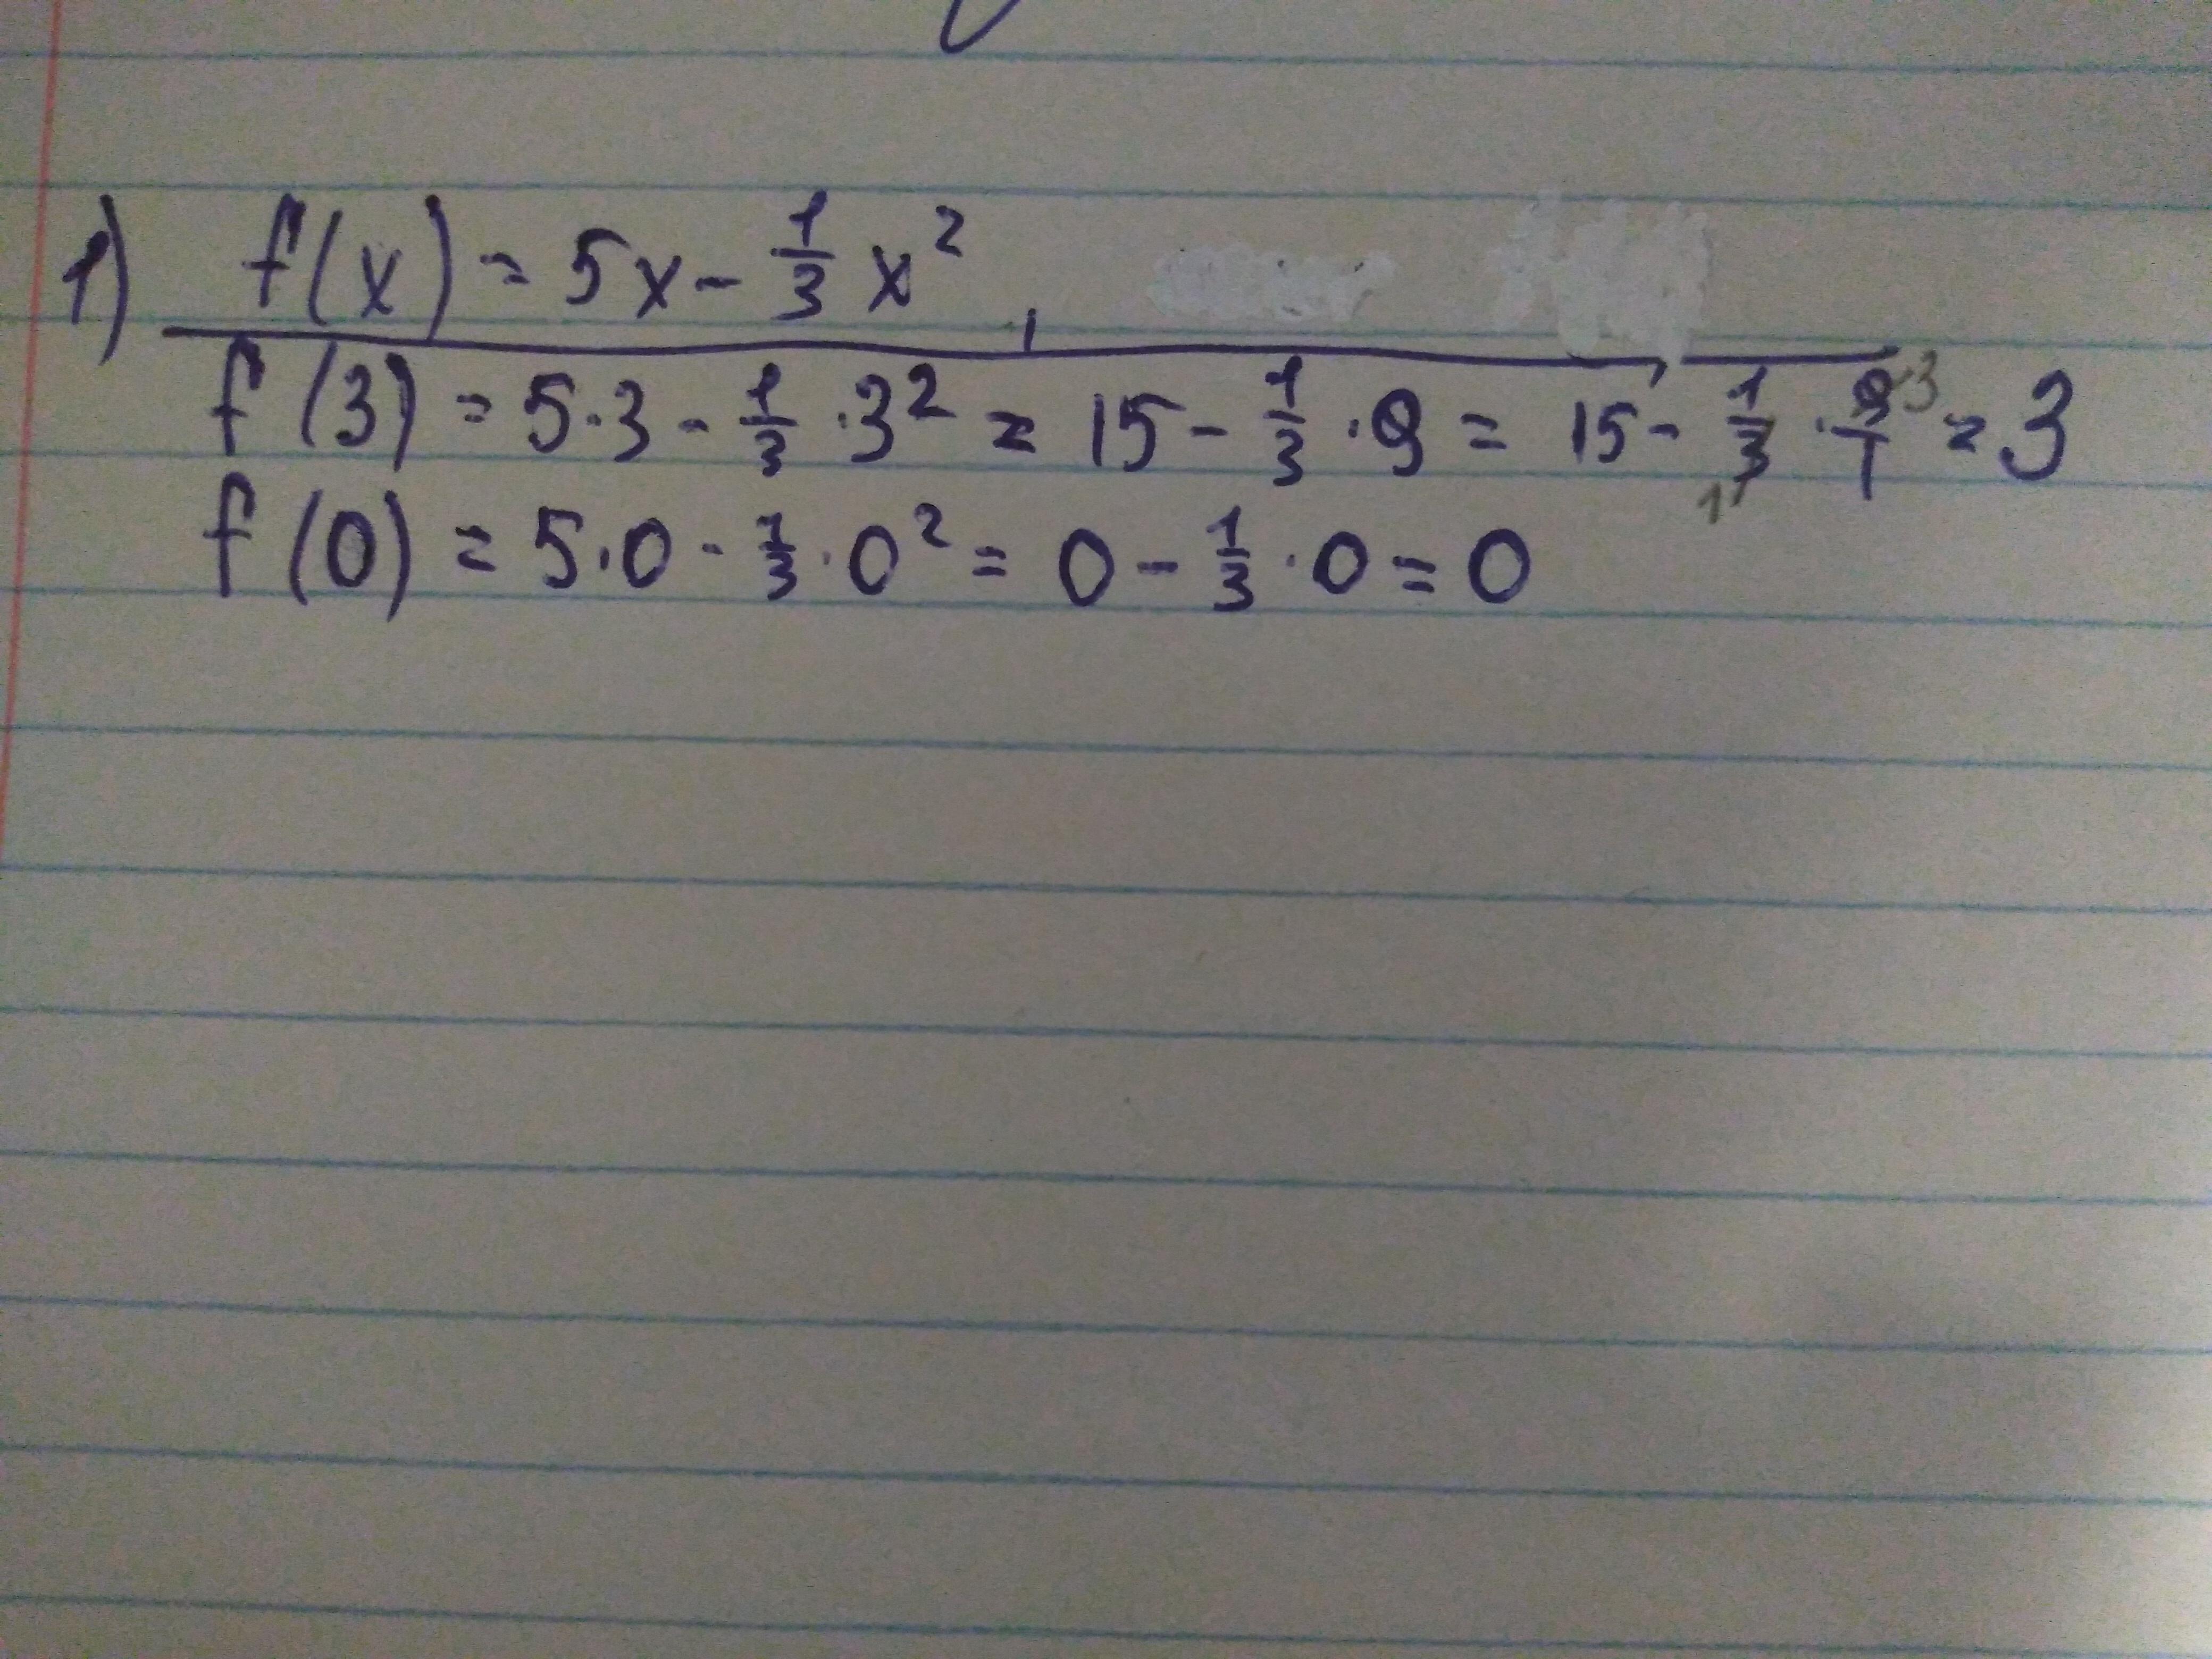 1) f(x) = 5x - 1/3 x²,
f(3) = 5·3 - 1/3 ·3² = 15 - 1/3 ·9 = 15 - 1/3 1 · 9/1 3 = 3
f(0) = 5·0 - 1/3 ·0² = 0 - 1/3 ·0 = 0